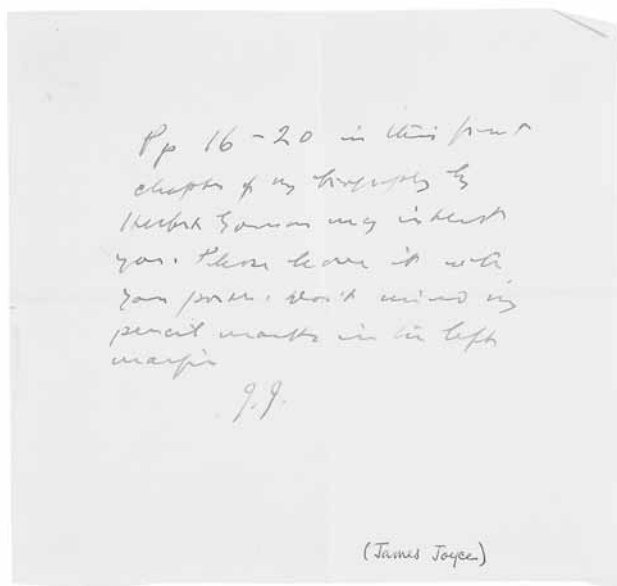 Pp 16-20 in this first
chapter of my biography by
Herbert Gorman may interest
you. Please leave it with
your porter. Don't mind my
pencil marks in the left
margin
J.J.
(James Joyce)